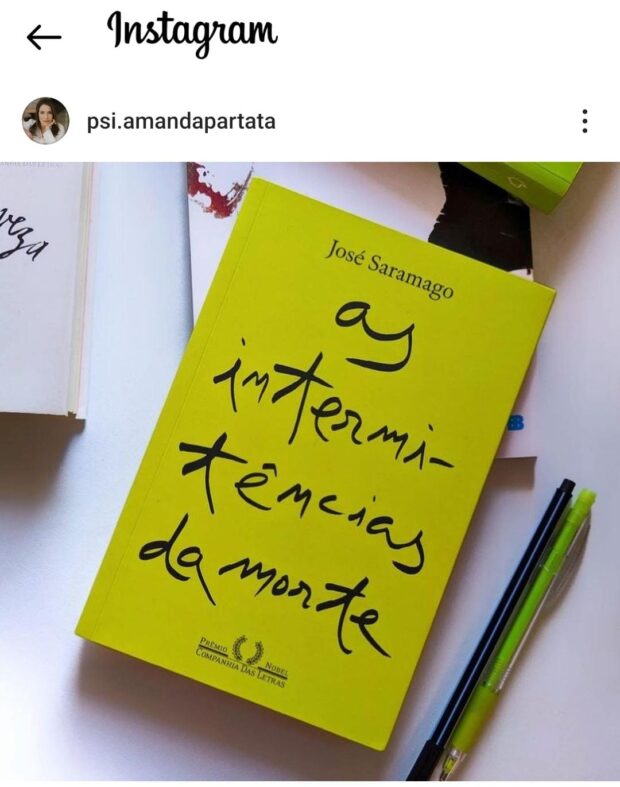 Instagram
psi.amandapartata
José Saramago
as
intermi-
tências
da morte
PRÊMIO NOBEL
COMPANHIA DAS LETRAS